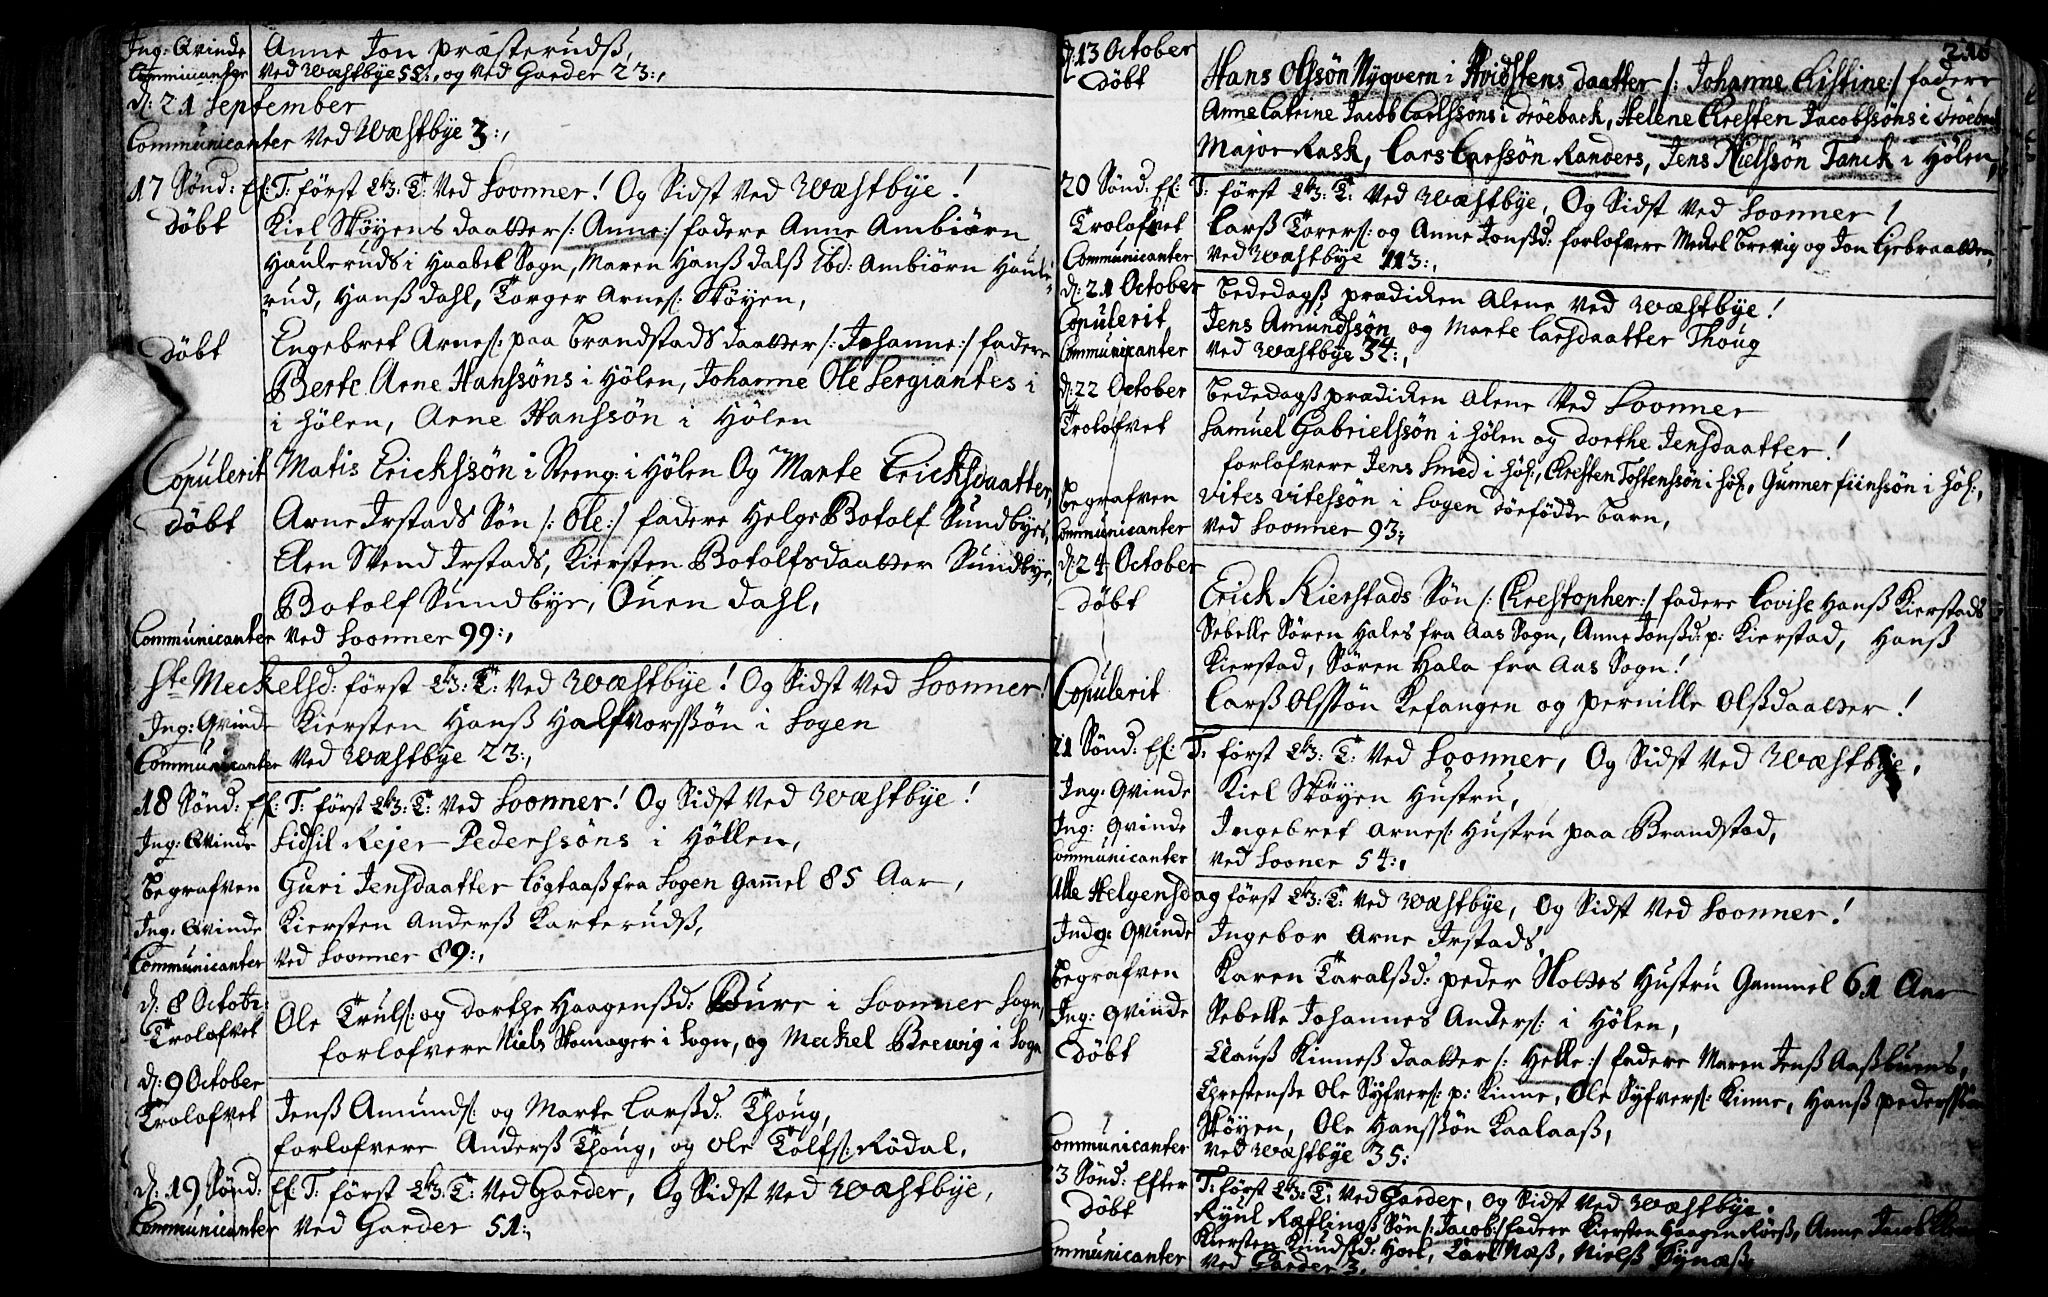 Ing: Qvinde Anne Jon præsterudß,
Communicanter Ved Wæstbye 52:, og Ved Garder 23:,
d: 21 September
Communicanter Ved Wæstbye 3:,
17 Sønd: Ef: T: först Ved Soonner! Og Sidst Ved Wæstbye!
Döbt Kiel Skøyens daatter /: Anne :/ fadere Anne Ambiörn
Hauleruds i Haabel Sogn, Maren Hanß dalß ibd: Ambiörn Haule
rud, Hanß dahl, Torger Arnes: Skøyen,
Döbt Engebret Arnes: paa Brandstads daatter /: Johanne :/ fadere
Berte Arne Hanssöns i Hölen, Johanne Ole Sergiantes i
i Hölen, Arne Hanssön i Hölen
Copulerit Matis Erickssön i Hölen Og Marte Ericksdaatter,
Döbt Arne Irstads Sön /: Ole :/ fadere Helge Botolf Sundbyes,
Elen Svend Irstads, Kiersten Botolfsdaatter Sundbye,
Botolf Sundbye, Ouen Dahl,
Communicanter Ved Soonner 99:,
Ste Meckelsd: först Ved Wæstbye! Og Sidst Ved Soonner!
Ing: Qvinde Kiersten Hanß Halfvorssön i Sogen
Communicanter Ved Wæstbye 23:,
18 Sønd: Ef: T: först Ved Soonner! Og Sidst Ved Wæstbye!
Ing: Qvinde Sidsil Rejer Pederssöns i Höllen,
Begrafven Guri Jensdaatter Lögtaaß fra Sogen gammel 85 Aar,
Ing: Qvinde Kiersten Anderß Karterudß,
Communicanter Ved Soonner 89:,
d: 8 Octobr: Ole Truls: og dorthe Haagensd: Bure i Soonner Sogn,
Trolofvet forlofvere Niels Skomager i Sogn, og Meckel Brewig i Sogn
d: 9 October
Trolofvet Jenß Amunds: og Marte Larsd: Thoug,
forlofvere Anderß Thoug, og Ole Tolfs: Rödal,
d: 19 Sønd: Ef: T: först Ved Garder, Og Sidst Ved Wæstbye,
Communicanter Ved Garder 51:,
d: 13 October
Döbt Hans Olssön Nyqvern i Hvidstens daatter /: Johanne Cistine :/ fadere
Anne Catrine Jacob Carlssöns i dröeback, Helene Chresten Jacobssöns i dröeback
Major Rask, Lars Larssön Randers, Jens Nielssön Tanck i Hölen,
20 Sønd: Ef: T: först Ved Wæstbye, Og Sidst Ved Soonner!
Trolofvet Larß Torers: og Anne Jonsd: forlofvere Meckel Brevig og Jon
Communicanter Ved Wæstbye 113:,
d: 21 October Bededagß prædicken Alene Ved Wæstbye!
Copulerit Jens Amundssön og Marte Larsdaatter Thoug
Communicanter Ved Wæstbye 34:,
d: 22 October Bededagß prædicken Alene Ved Soonner
Trolofvet Samuel Gabrielssön i Hölen og dorthe Jensdaatter!
forlofvere Jens Smed i Höl:, Chresten Tostenssön i Höl, Gunner fiinssön i Höl:,
Begrafven Vites Vitessön i Sogen döefödde Barn,
Communicanter Ved Soonner 93:,
d: 24 October
Döbt Erick Kierstads Sön /: Chrestopher :/ fadere Lovise Hanß Kierstads
Sebelle Sören Hales fra Aas Sogn, Anne Jonsd: p: Kierstad, Hanß
Kierstad, Sören Hala fra Aas Sogn!
Copulerit Larß Olssön Kefangen og Pernille Olßdaatter!
21 Sønd: Ef: T: först Ved Soonner, Og Sidst Ved Wæstbye,
Ing: Qvinde Kiel Skøyen Hustru,
Ing: Qvinde Ingebret Arnes: Hustru paa Brandstad,
Communicanter Ved Sooner 54:,
Alle Helgensdag först Ved Wæstbye, Og Sidst Ved Soonner!
Indg: Qvinde Ingebor Arne Irstads,
Begrafven Karen Taralsd: peder Holtes Hustru Gammel 61 Aar
Ing: Qvinde Sebelle Johannes Anders: i Hölen,
Döbt Clauß Kinneß daatter /: Helle :/ fadere Maren Jenß Aaßbuens,
Chrestense Ole Syfvers: p: Kinne, Ole Syfvers: Kinne, Hanß pederssön
Skøyen, Ole Hanssön Kaalaaß,
Communicanter Ved Wæstbye 35:
23 Sønd: Efter T: först Ved Garder, Og Sidst Ved Wæstbye.
Döbt Ryul Ræflingß Sön /: Jacob :/ fadere Kiersten Haagen Röesß, Anne Jacob
Kiersten Knudsd: Hoel, Carl Næß, Nielß Bynæß,
Communicanter Ved Garder 3,